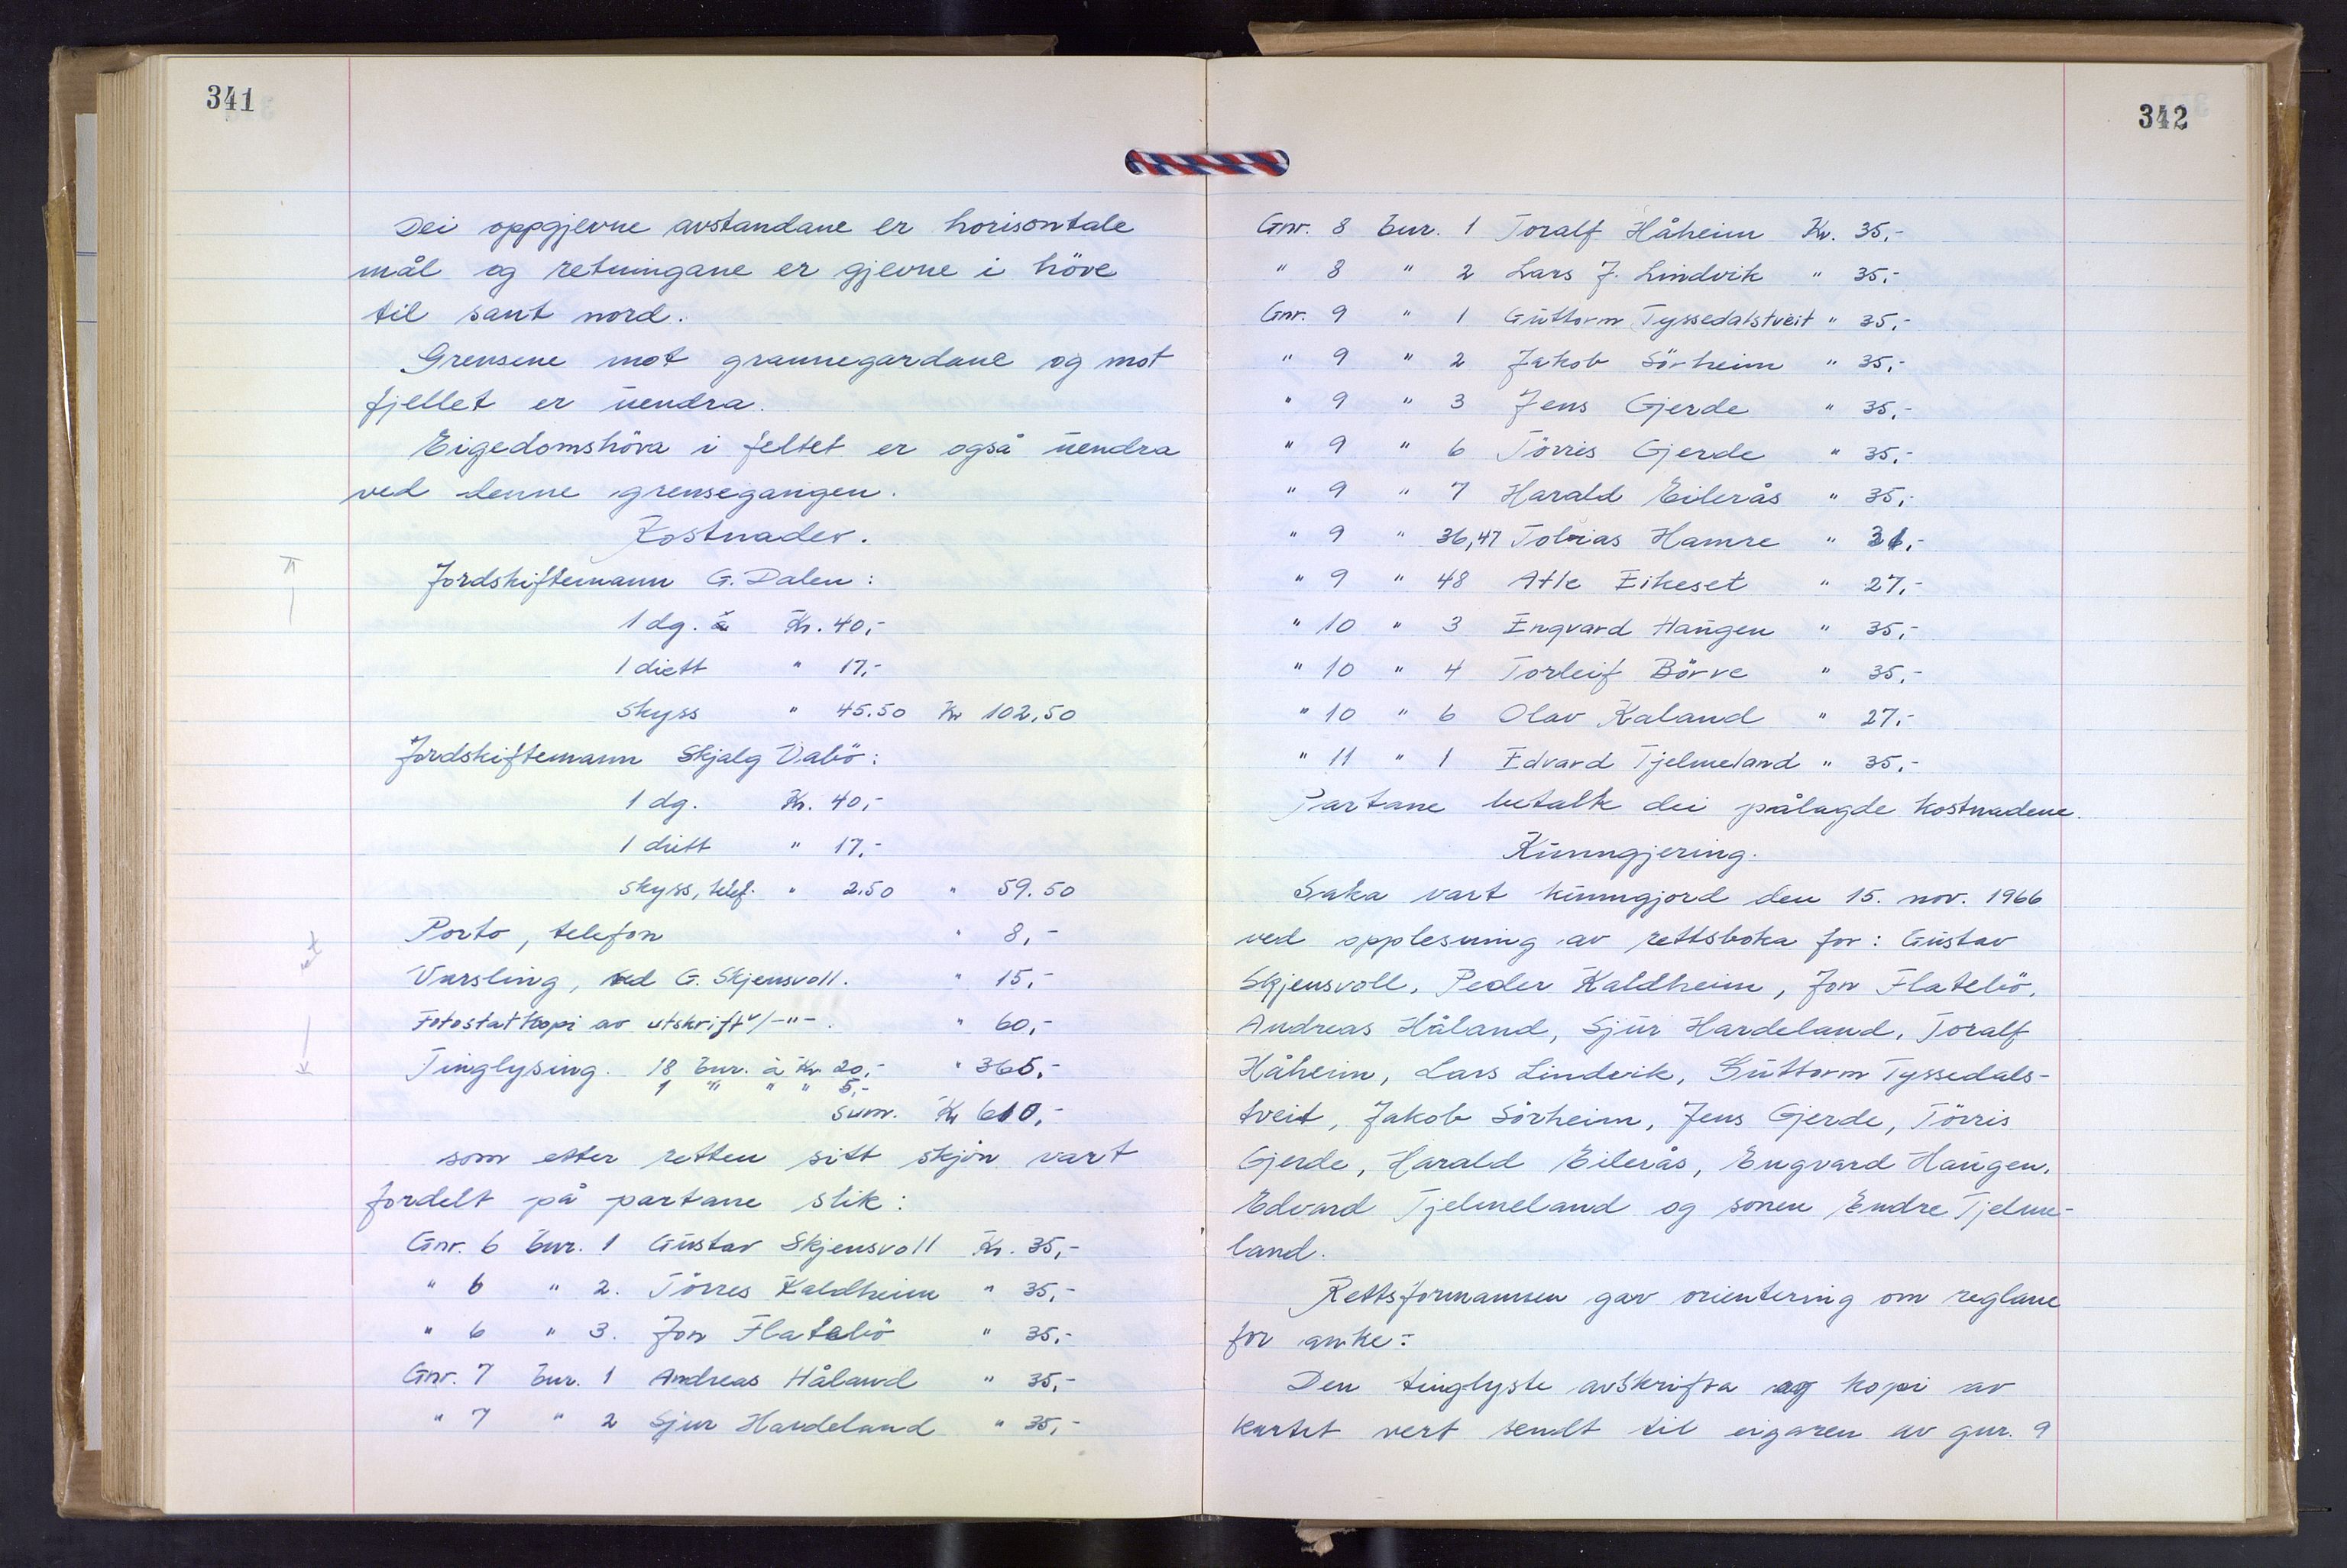 341
Dei oppgjevne avstandane er horisontale
mål og retningane er gjevne i höve
til sant nord.
Grensene mot grannegardane og mot
fjellet er uendra.
Eigedomshöva i feltet er også uendra
ved denne grensegangen.
Kostnader.
Jordskiftemann G. Dalen:
1 dg. à Kr. 40,-
1 diett " 17,-
Skyss " 45.50 Kr 102,50
Jordskiftemann Skjalg Vabö:
1 dg. Kr. 40,-
1 diett " 17,-
Skyss, telef. " 2.50 " 59.50
Porto, telefon " 8,-
Varsling, ved G. Skjensvoll. " 15,-
Fotostatkopi av utskrift v/-"-. " 60,-
Tinglysing. 18 bnr. à Kr. 20,- " 365,-
1 " " " 5,-
Sum. Kr 610,-
som etter retten sitt skjön vart
fordelt på partane slik:
Gnr. 6 bnr. 1 Gustav Skjensvoll Kr. 35,-
" 6 " 2. Törres Kaldheim " 35,-
" 6 " 3. Jon Flatebö " 35,-
Gnr. 7 bnr. 1 Andreas Håland " 35,-
" 7 " 2 Sjur Hardeland " 35,-
342
Gnr. 8 bnr. 1 Toralf Håheim Kr. 35,-
" 8 " 2 Lars J. Lindvik " 35,-
Gnr. 9 " 1 Guttorm Tyssedalstveit " 35,-
" 9 " 2 Jakob Sörheim " 35,-
" 9 " 3 Jens Gjerde " 35,-
" 9 " 6 Törris Gjerde " 35,-
" 9 " 7 Harald Eilerås " 35,-
" 9 " 36,47 Tobias Hamre " 31,-
" 9 " 48 Atle Eikeset " 27,-
" 10 " 3 Engvard Haugen " 35,-
" 10 " 4 Torleif Börve " 35,-
" 10 " 6 Olav Kaland " 27,-
" 11 " 1 Edvard Tjelmeland " 35,-
Partane betalte dei pålagde kostnadene.
Kunngjering.
Saka vart kunngjord den 15. nov. 1966
ved opplesning av rettsboka for: Gustav
Skjensvoll, Peder Kaldheim, Jon Flatebö,
Andreas Håland, Sjur Hardeland, Toralf
Håheim, Lars Lindvik, Guttorm Tyssedals-
tveit, Jakob Sörheim, Jens Gjerde, Törris
Gjerde, Harald Eilerås, Engvard Haugen,
Edvard Tjelmeland og sonen Endre Tjelme-
land.
Rettsformannen gav orientering om reglane
for anke:
Den tinglyste avskrifta og kopi av
kartet vert sendt til eigaren av gnr. 9